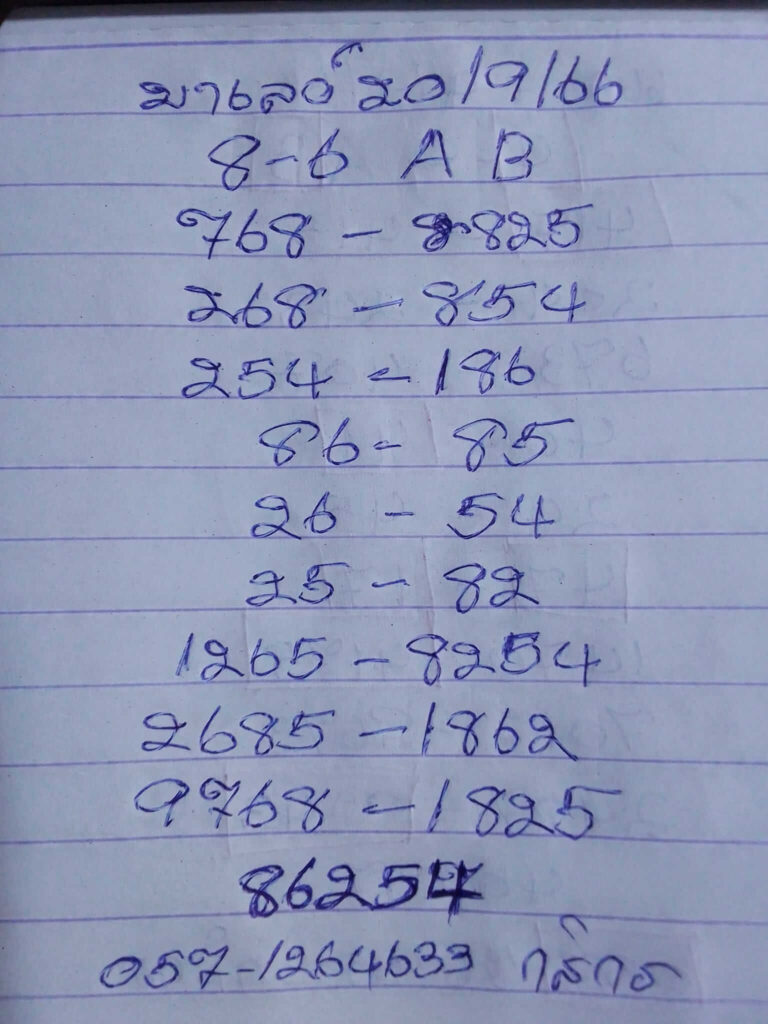 มาเลย์ 20/9/66
8-6 A B
768 - 825
268 - 854
254 - 186
86 - 85
26 - 54
25 - 82
1265 - 8254
2685 - 1862
9768 - 1825
86254
057-1264633